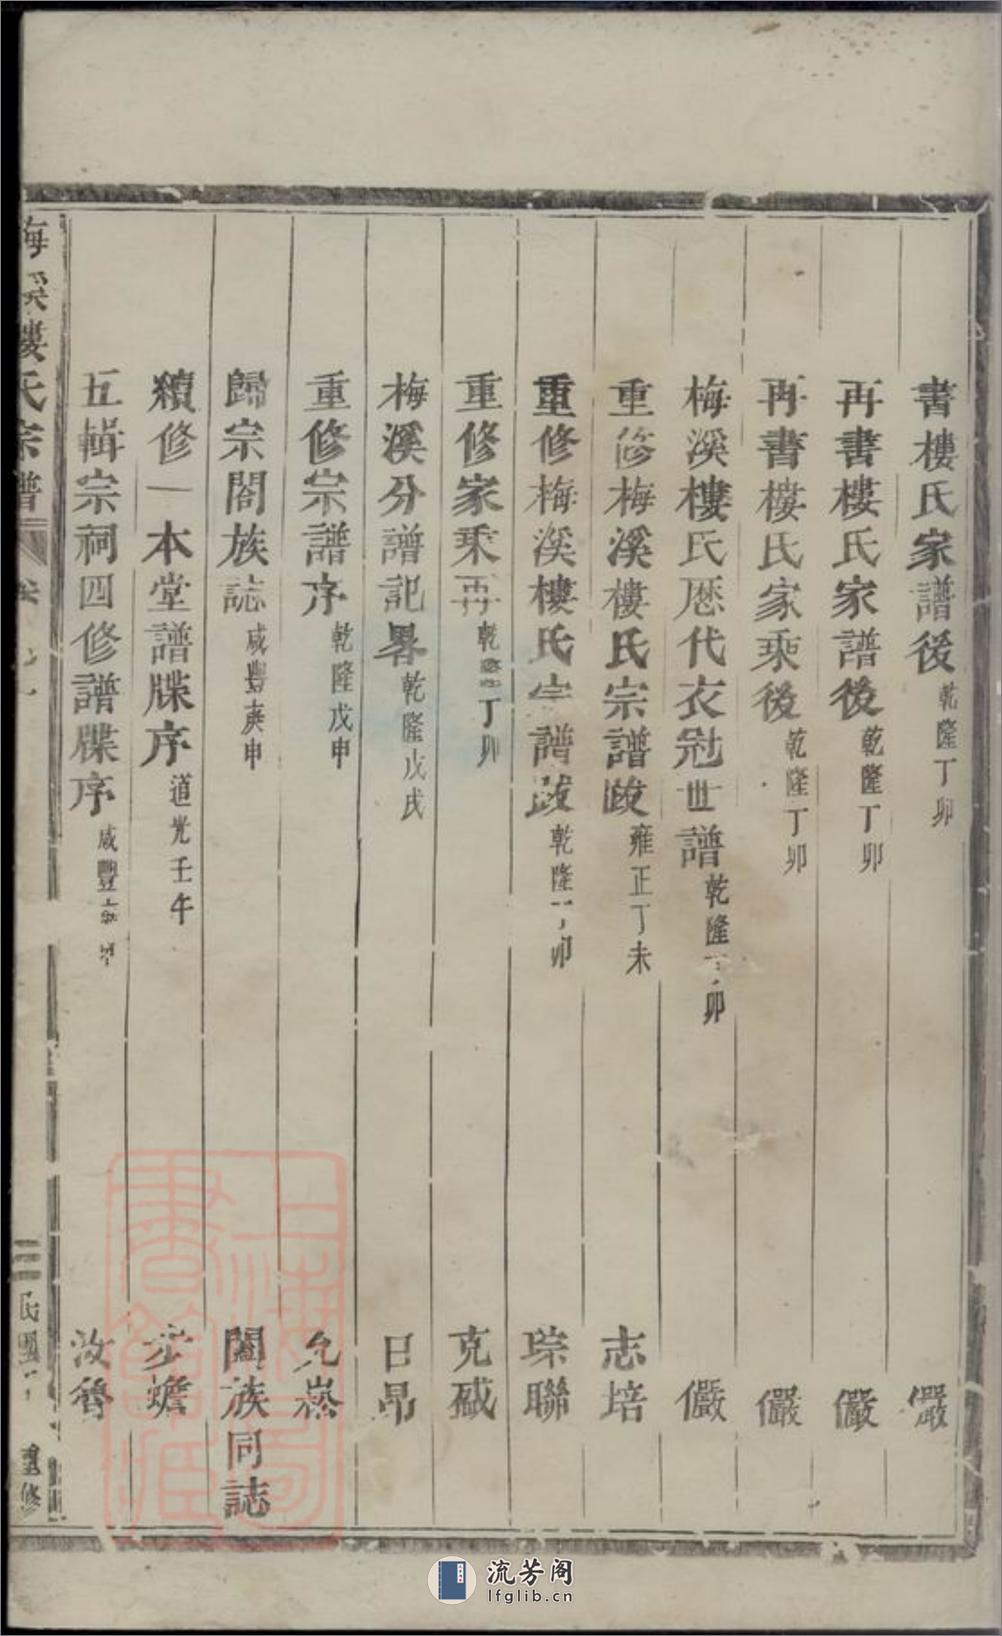 書樓氏家譜後 乾隆丁卯 儼
再書樓氏家譜後 乾隆丁卯 儼
再書樓氏家乘後 乾隆丁卯 儼
梅溪樓氏歷代衣冠世譜 乾隆丁卯 儼
重修梅溪樓氏宗譜跋 雍正丁未 志培
重修梅溪樓氏宗譜跋 乾隆丁卯 琮聯
重修家乘再 乾隆丁卯 克
梅溪分譜記畧 乾隆戊戌 日昂
重修宗譜序 乾隆戊申 允
歸宗閤族誌 咸豐庚申 闔族同誌
續修一本堂譜牒序 道光壬午
五輯宗祠四修譜牒序 咸豐 汝魯
梅溪樓氏宗譜 卷之一 民國 重修
上海圖書館藏
流芳阁
lfglib.cn